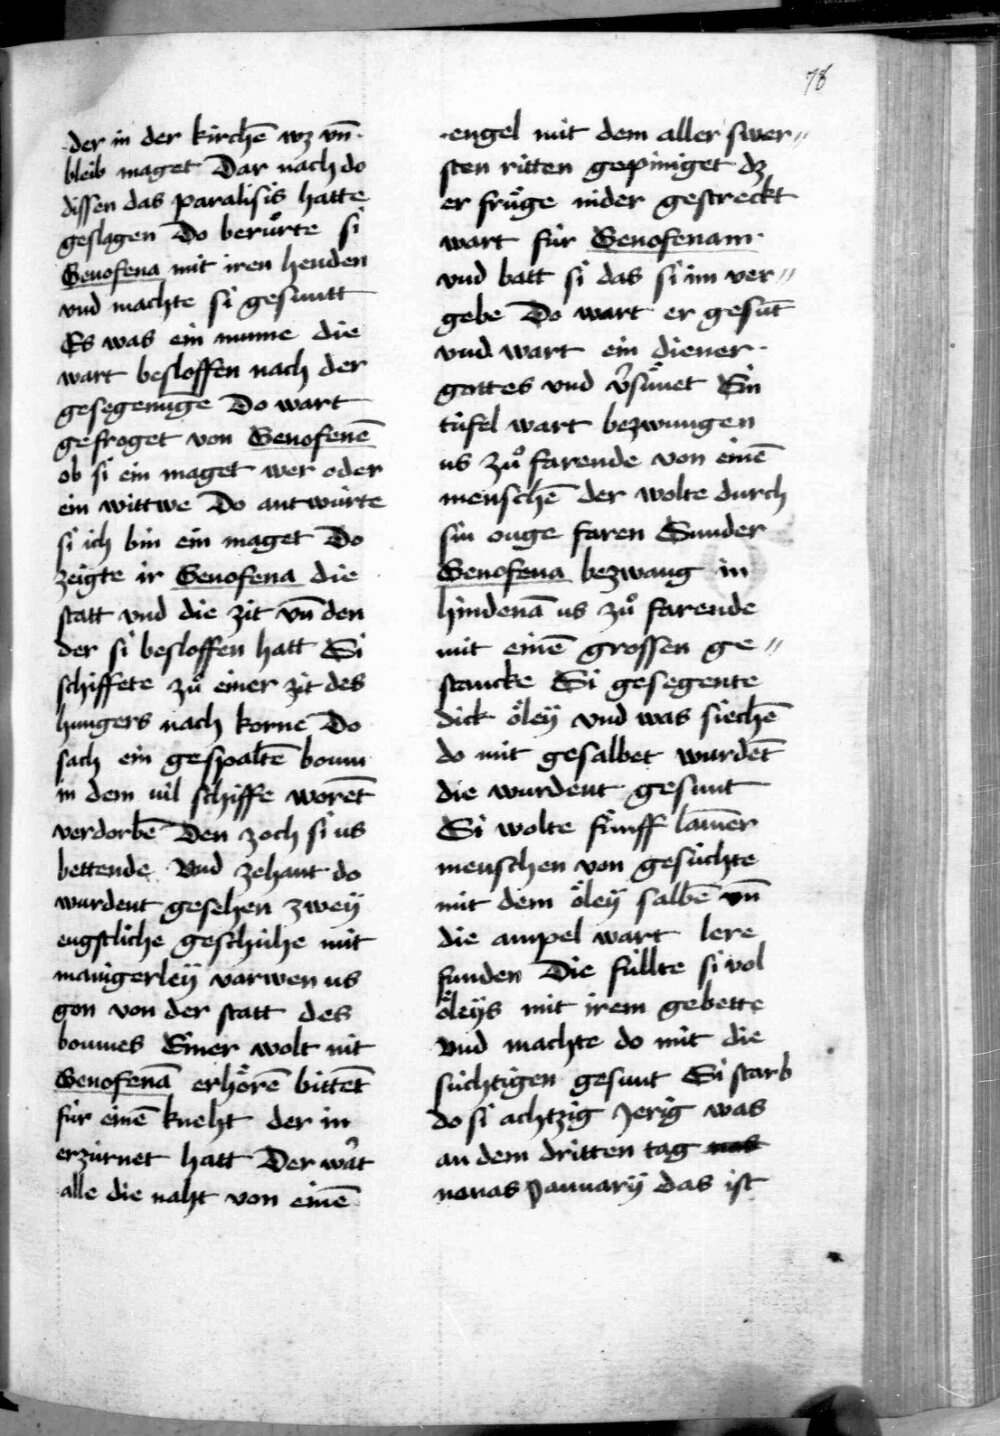 78
der in der kirchē wz vn̄
bleib maget Dar nach do
dissen das paralisis hatte
geslagen Do berůrte si
Genofena mit iren henden
vnd machte si gesuntt
Es was ein nunne die
wart besloffen nach der
gesegenūge Do wart
gefroget von Genofenē
ob si ein maget wer oder
ein wittwe Do antwúrte
si ich bin ein maget Do
zeigte ir Genofena die
statt vnd die zit vn̄ den
der si besloffen hatt Si
schiffete zů einer zit des
hungers nach korne Do
sach ein gespaltē boum
in dem uil schiffe worēt
verdorbē Den zoch si us
bettende Vnd zehant do
wurdent gesehen zweÿ
engstliche geschúhe mit
manigerleÿ varwen us
gon von der statt des
boumes Einer wolt nit
Genofenā erhörē bittēt
fúr einē kneht der in
erzúrnet hatt Der wa᷑t
alle die naht von einē
engel mit dem aller swer〃
sten ritten gepiniget dz
er frůge nider gestreckt
wart fúr Genofenam
vnd batt si das si im ver〃
gebe Do wart er gesūt
vnd wart ein diener
gottes vnd v᷑sůnet Ein
túfel wart bezwungen
us zů farende von einē
menschē der wolte durch
sin ouge faren Sunder
Genofena bezwang in
hindenā us zů farende
mit einē grossen ge〃
stancke Si gesegente
dick ôleÿ vnd was siechē
do mit gesalbet wurdēt
die wurdent gesunt
Si wolte fúnff lāmer
menschen von gesúchte
mit dem ôleÿ salbē vn̄
die ampel wart lere
funden Die fúllte si vol
ôleÿs mit irem gebette
Vnd machte do mit die
súchtigen gesunt Si starb
do si achtzig Jerig was
an dem dritten tag
nonas Januarÿ das ist